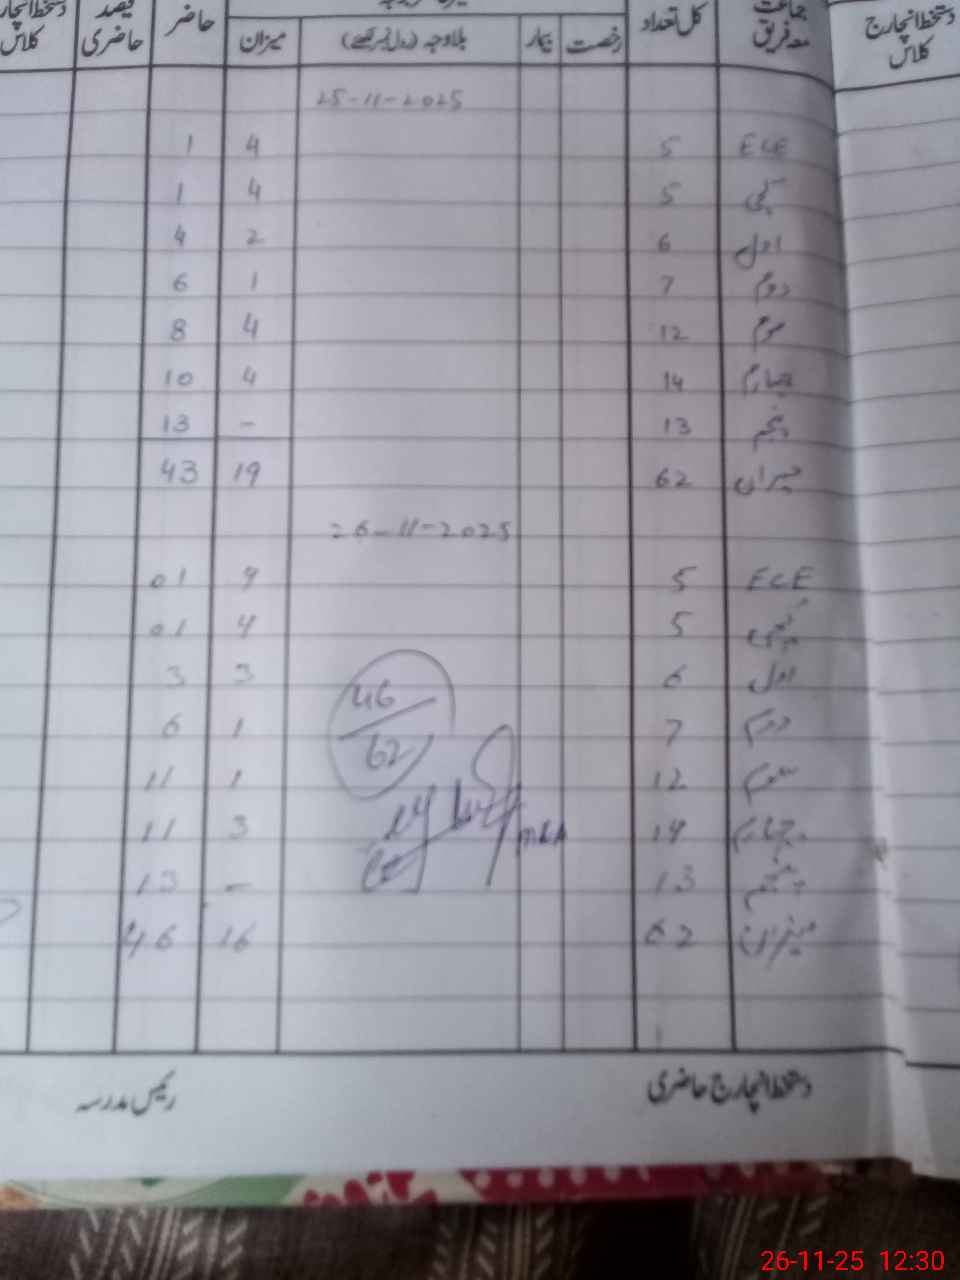 دستخط انچارج کلاس
جماعت معہ فریق کل تعداد رخصت بیمار بلاوجہ (رول نمبر لکھئے) میزان حاضر فیصد حاضری دستخط انچارج کلاس
25-11-2025
ECE 5 4 1
کچی 5 4 1
اول 6 2 4
دوم 7 1 6
سوم 12 4 8
چہارم 14 4 10
پنجم 13 - 13
میزان 62 19 43
26-11-2025
ECE 5 4 01
کچی 5 4 01
اول 6 3 3
دوم 7 1 6
سوم 12 1 11
چہارم 14 3 11
پنجم 13 - 13
میزان 62 16 46
46
62
دستخط انچارج حاضری رئیس مدرسہ
26-11-25 12:30